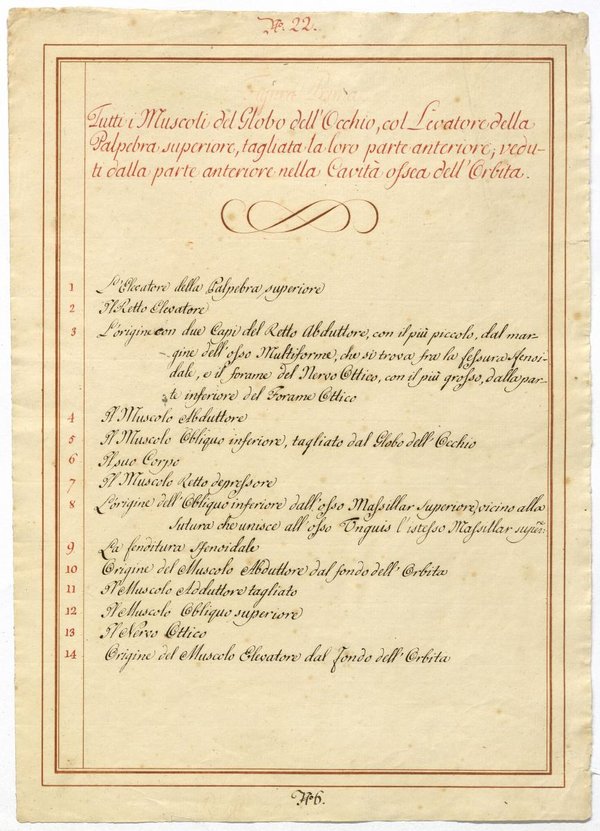 No. 22.
Tutti i Muscoli del Globo dell'Occhio, col Levatore della
Palpebra superiore, tagliata la loro parte anteriore; vedu-
ti dalla parte anteriore nella Cavità ossea dell'Orbita.
1 L'Elevatore della Palpebra superiore
2 Il Retto Elevatore
3 L'origine con due Capi del Retto Abduttore, con il più piccolo, dal mar-
gine dell'osso Multiforme, che si trova fra la fessura sfenoi-
dale, e il forame del Nervo Ottico, con il più grosso, dalla par-
te inferiore del Forame Ottico
4 Il Muscolo Abduttore
5 Il Muscolo Obliquo inferiore, tagliato dal Globo dell'Occhio
6 Il suo Corpo
7 Il Muscolo Retto depressore
8 L'origine dell'Obliquo inferiore dall'osso Massillar Superiore, vicino alla
Sutura che unisce all'osso Unguis l'istesso Massillar super:
9 La fenditura sfenoidale
10 Origine del Muscolo Abduttore dal fondo dell'Orbita
11 Il Muscolo Adduttore tagliato
12 Il Muscolo Obliquo superiore
13 Il Nervo Ottico
14 Origine del Muscolo Elevatore dal Fondo dell'Orbita